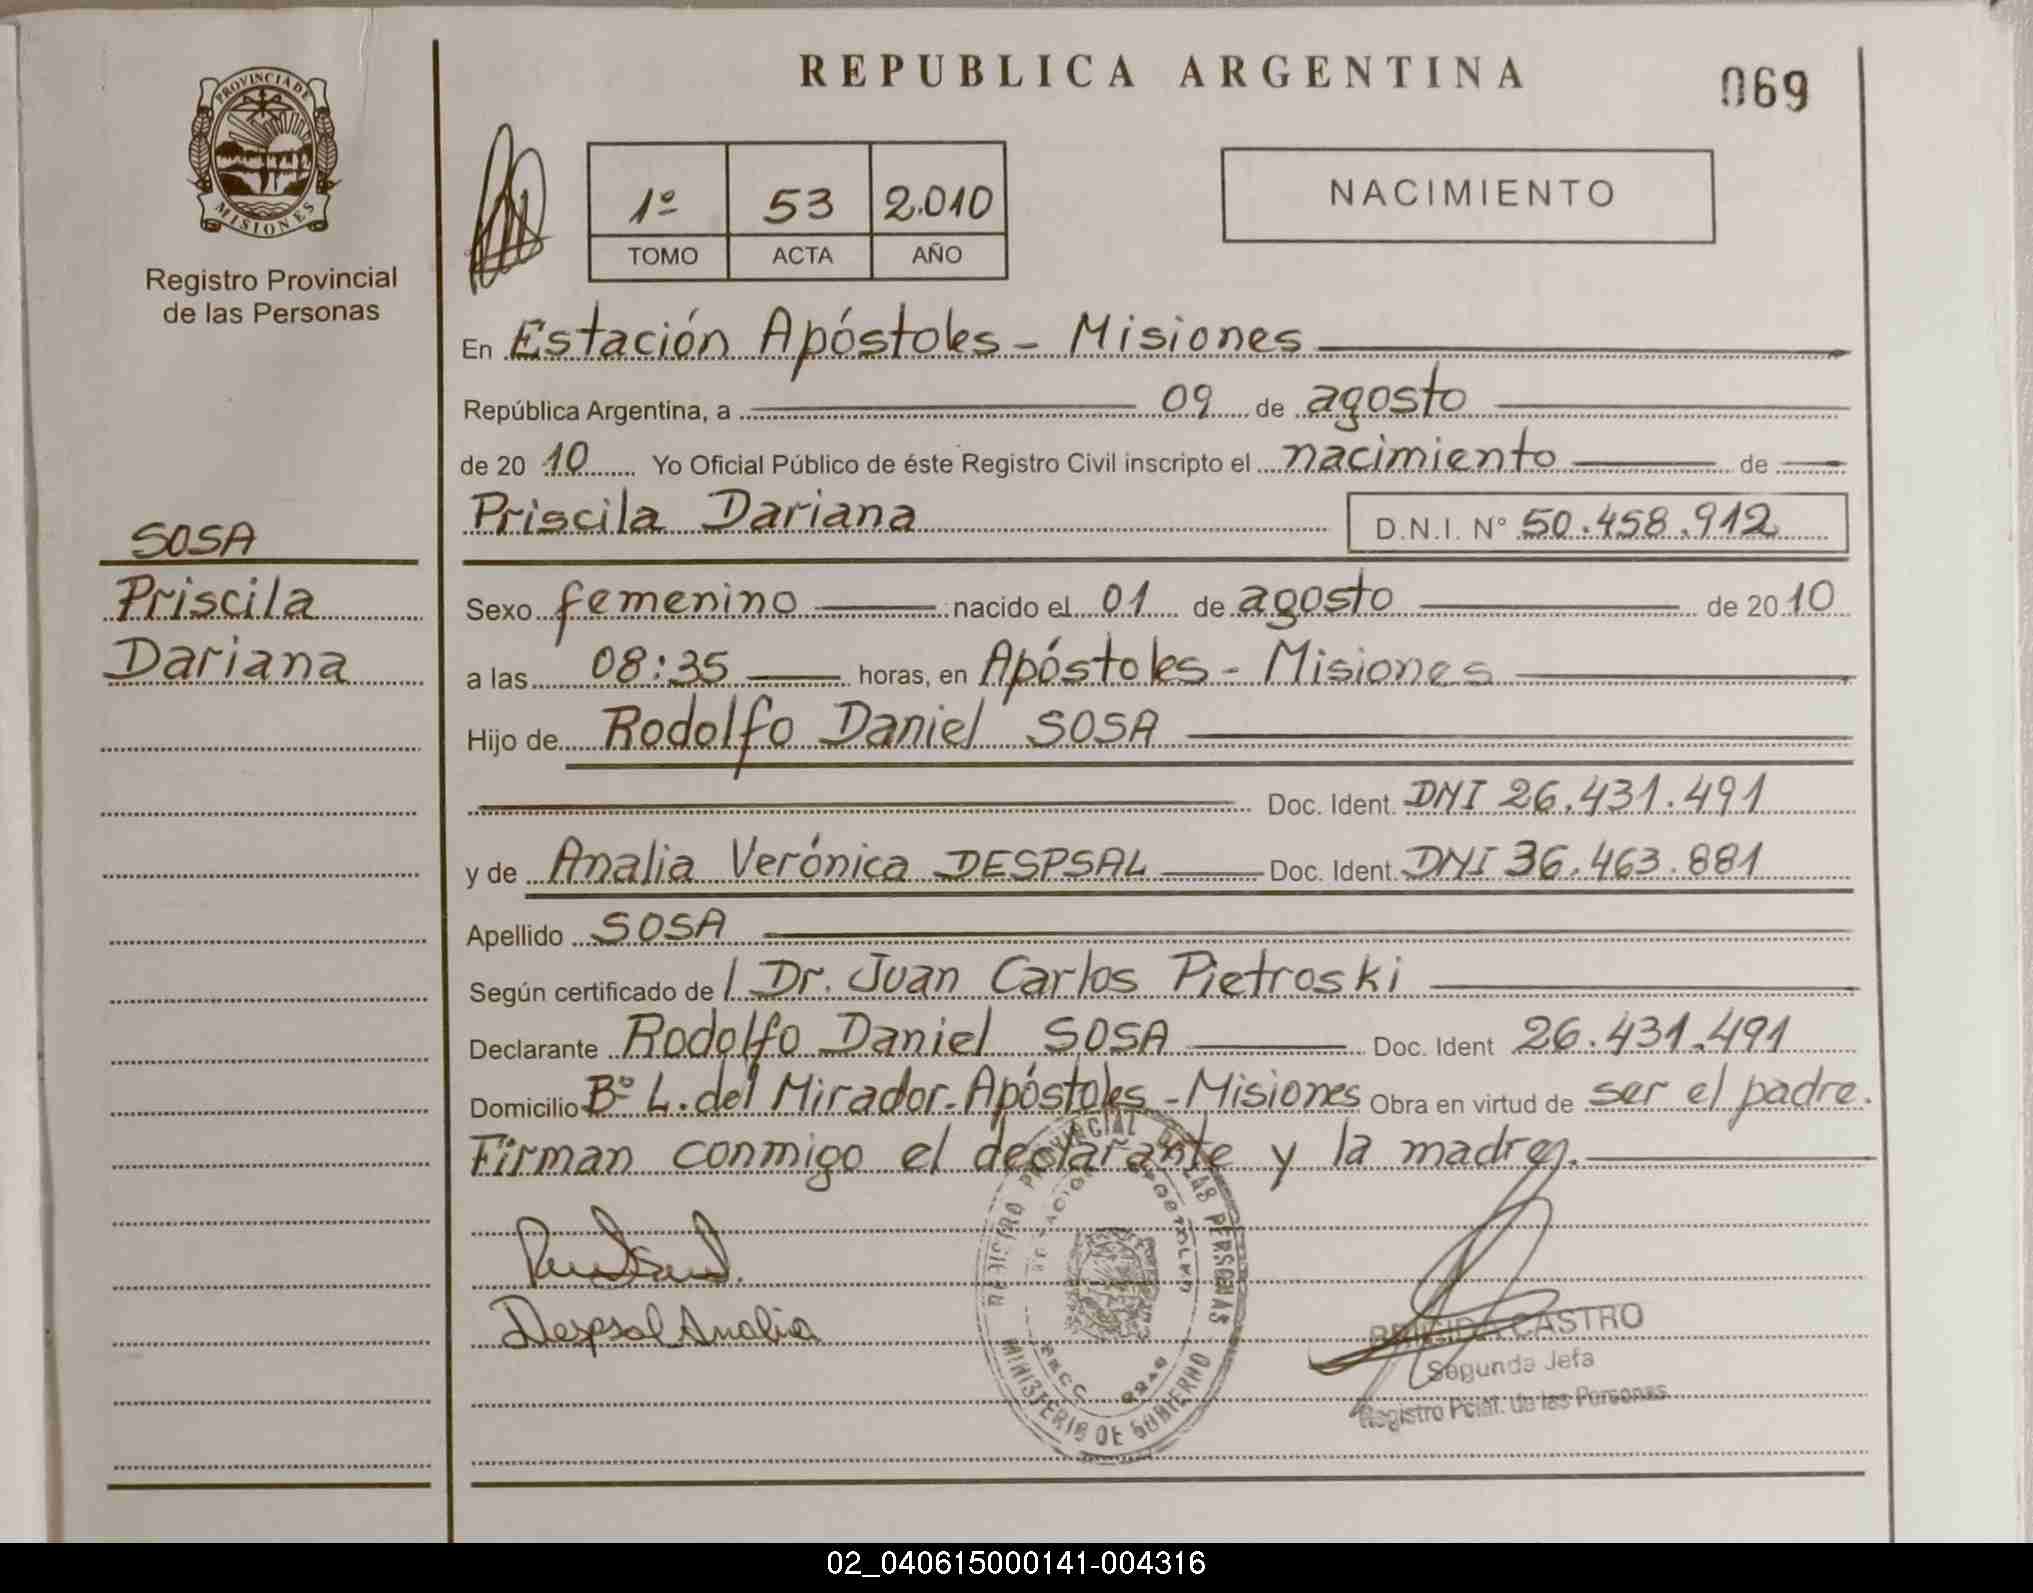 REPUBLICA ARGENTINA
069
PROVINCIA DE
MISIONES
Registro Provincial
de las Personas
1º 53 2.010
TOMO ACTA AÑO
NACIMIENTO
En Estación Apóstoles - Misiones
República Argentina, a 09 de agosto
de 20 10 Yo Oficial Público de éste Registro Civil inscripto el nacimiento de
Priscila Dariana D.N.I. Nº 50.458.912
SOSA
Priscila
Dariana
Sexo femenino nacido el 01 de agosto de 20 10
a las 08:35 horas, en Apóstoles - Misiones
Hijo de Rodolfo Daniel SOSA
Doc. Ident. DNI 26.431.491
y de Analia Verónica DESPSAL Doc. Ident. DNI 36.463.881
Apellido SOSA
Según certificado de / Dr. Juan Carlos Pietroski
Declarante Rodolfo Daniel SOSA Doc. Ident 26.431.491
Domicilio Bº L. del Mirador. Apóstoles - Misiones Obra en virtud de ser el padre.
Firman conmigo el declarante y la madre.
Despsal Analia
REGISTRO PROVINCIAL DE LAS PERSONAS
MINISTERIO DE GOBIERNO
CASTRO
Segunda Jefa
Registro Pcial. de las Personas
02_040615000141-004316